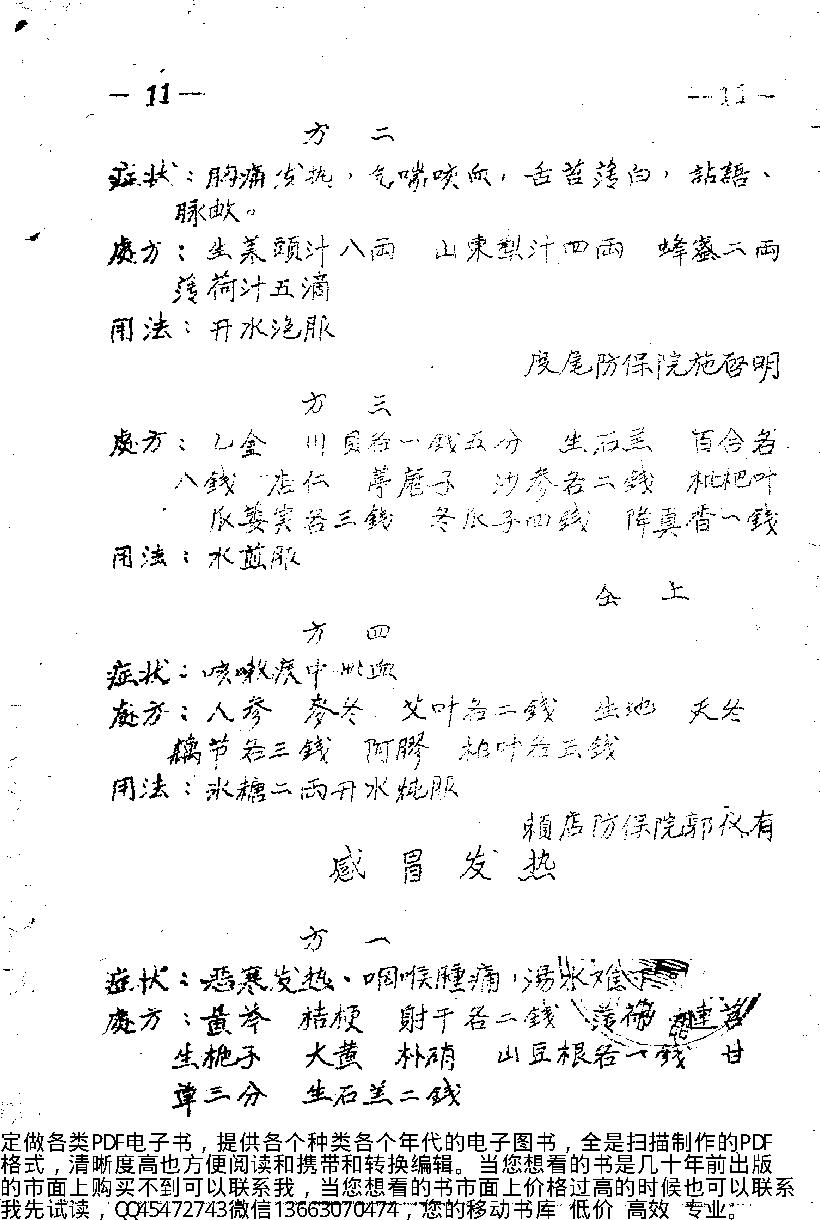 — 11 —
— 11 —
方 二
症状：胸痛发热，气喘咳血，舌苔薄白，詀語、
脉
處方：生菜頭汁八両 山東梨汁四両 蜂蜜二両
薄荷汁五滴
用法：开水泡服
度尾防保院施啓明
方 三
處方：乙金 川貝各一錢五分 生石羔 百合各
八錢 杏仁 葶苈子 沙參各二錢 枇杷叶
瓜蒌实各三錢 冬瓜子四錢 降真香一錢
用法：水煎服
仝 上
方 四
症状：咳嗽痰中出血
處方：人參 麥冬 艾叶各二錢 生地 天冬
藕节各三錢 阿膠 柏叶各五錢
用法：冰糖二両开水炖服
賴店防保院郭仪有
感 冒 发 热
方 一
症状：恶寒发热、咽喉腫痛，湯水难下
處方：黃芩 桔梗 射干各二錢 薄荷 連召
生栀子 大黄 朴硝 山豆根各一錢 甘
草三分 生石羔二錢
定做各类PDF电子书，提供各个种类各个年代的电子图书，全是扫描制作的PDF
格式，清晰度高也方便阅读和携带和转换编辑。当您想看的书是几十年前出版
的市面上购买不到可以联系我，当您想看的书市面上价格过高的时候也可以联系
我先试读，QQ45472743微信13663070474，您的移动书库 低价 高效 专业。